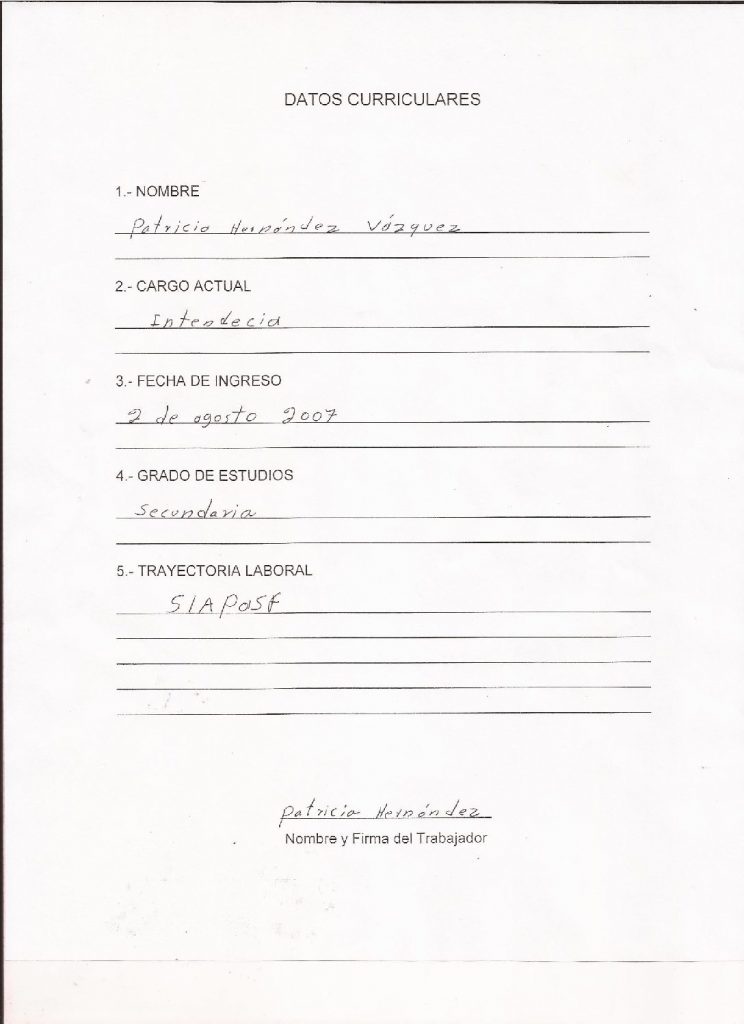 DATOS CURRICULARES
1.- NOMBRE
Patricia Hernández Vázquez
2.- CARGO ACTUAL
Intendecia
3.- FECHA DE INGRESO
2 de agosto 2007
4.- GRADO DE ESTUDIOS
Secundaria
5.- TRAYECTORIA LABORAL
SIAPASF
Patricia Hernández
Nombre y Firma del Trabajador